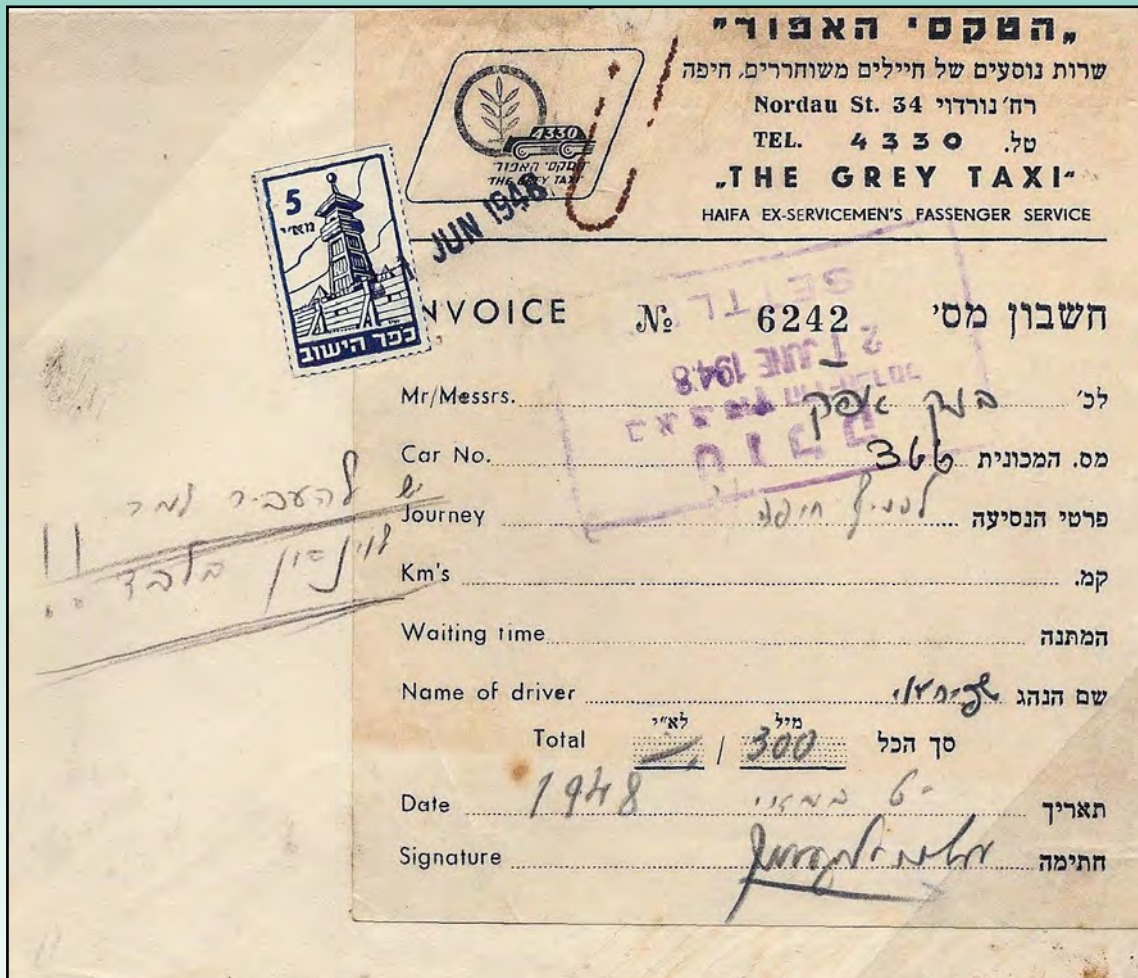 „הטקסי האפור"
שרות נוסעים של חיילים משוחררים, חיפה
רח' נורדוי 34 Nordau St.
TEL. 4330 טל.
„THE GREY TAXI"
HAIFA EX-SERVICEMEN'S PASSENGER SERVICE
4330
הטקסי האפור
THE GREY TAXI
JUN 1948
5
מא"י
כפר הישוב
INVOICE № 6242 חשבון מס'
SETTL
21 JUNE 1948
Mr/Messrs. בנק אפק לכ'
Car No. טטצ מס. המכונית
Journey לסניף חיפה פרטי הנסיעה
Km's קמ.
Waiting time המתנה
Name of driver שם הנהג
לא"י מיל
Total / 300 סך הכל
Date 1948 תאריך
Signature חתימה
יש להעביר
בלבד